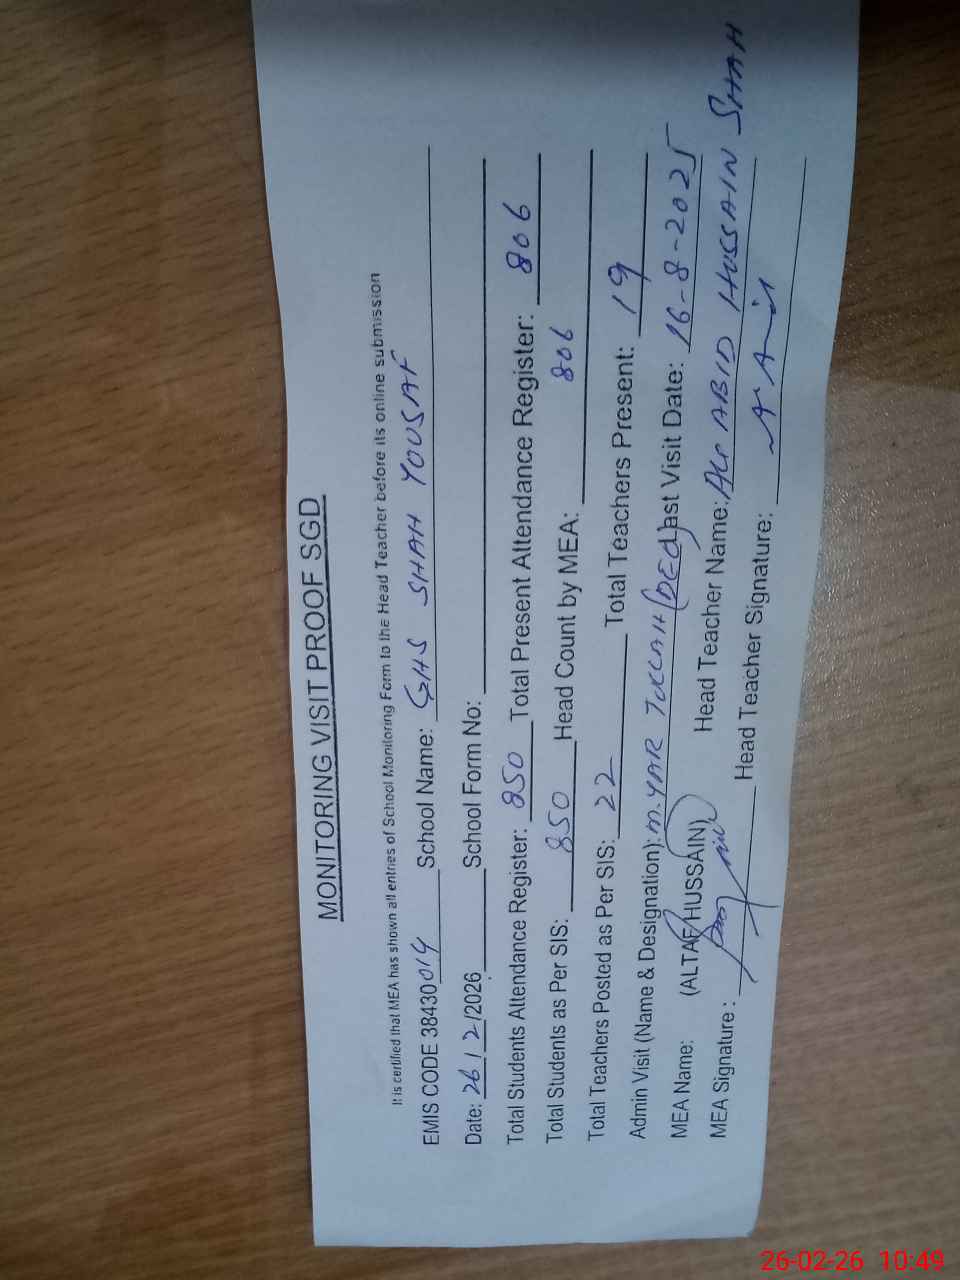 MONITORING VISIT PROOF SGD
It is certified that MEA has shown all entries of School Monitoring Form to the Head Teacher before its online submission
EMIS CODE 38430014 School Name: GHS SHAH YOUSAF
Date: 26/2/2026 School Form No:
Total Students Attendance Register: 850 Total Present Attendance Register: 806
Total Students as Per SIS: 850 Head Count by MEA: 806
Total Teachers Posted as Per SIS: 22 Total Teachers Present: 19
Admin Visit (Name & Designation): M. YAR (DEO) Last Visit Date: 16-8-2025
MEA Name: (ALTAF HUSSAIN) Head Teacher Name: ABID HUSSAIN SHAH
MEA Signature: Head Teacher Signature:
26-02-26 10:49